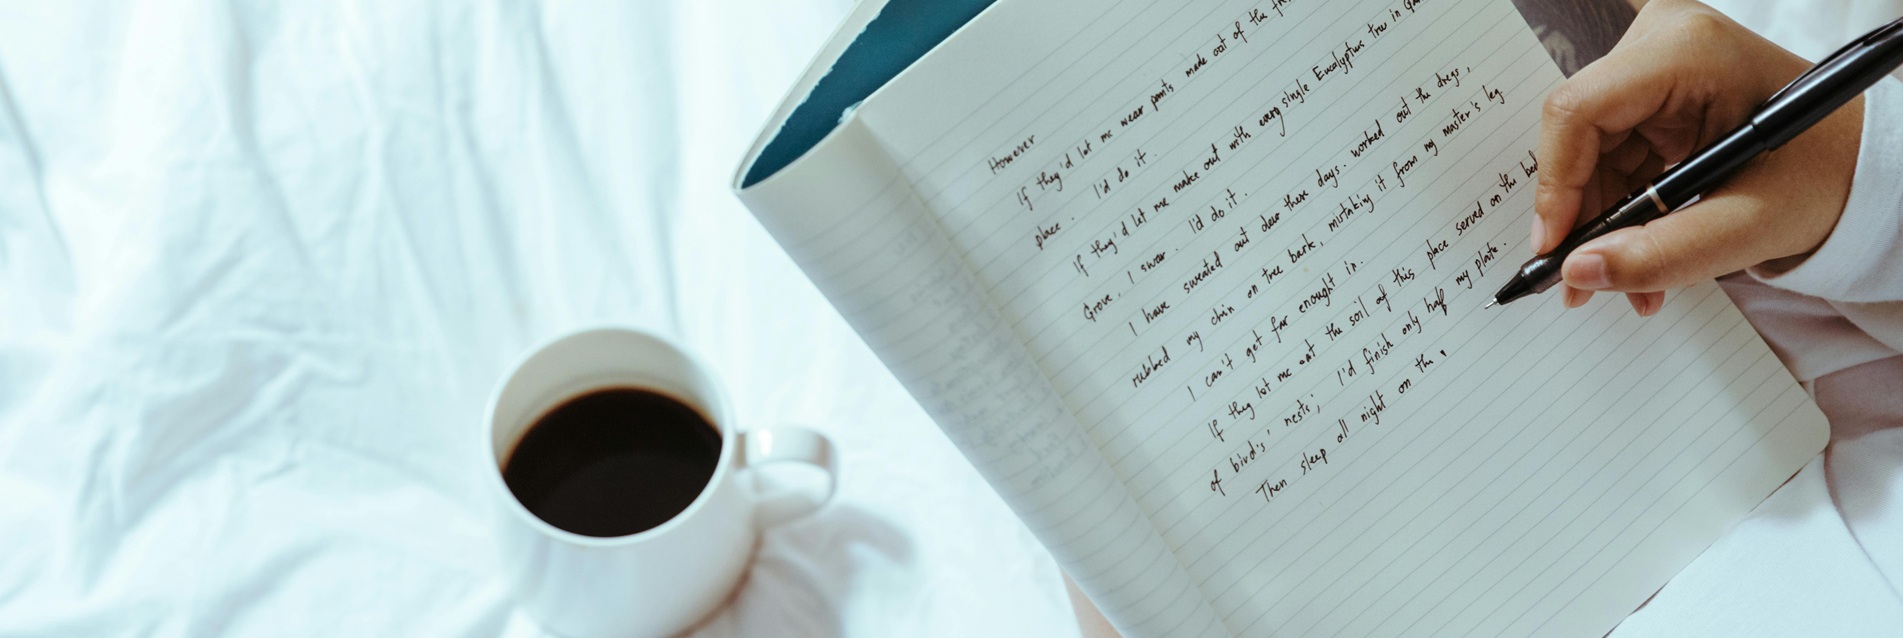 However
If they'd let me wear pants made out of the
place. I'd do it.
If they'd let me make out with every single Eucalyptus tree in
Grove, I swear. I'd do it.
I have sweated out dew these days. worked out the dregs,
rubbed my chin on tree bark, mistaking it from my master's leg
I can't get far enought in.
If they let me eat the soil of this place served on the bed
of bird's' nests; I'd finish only half my plate.
Then sleep all night on the.